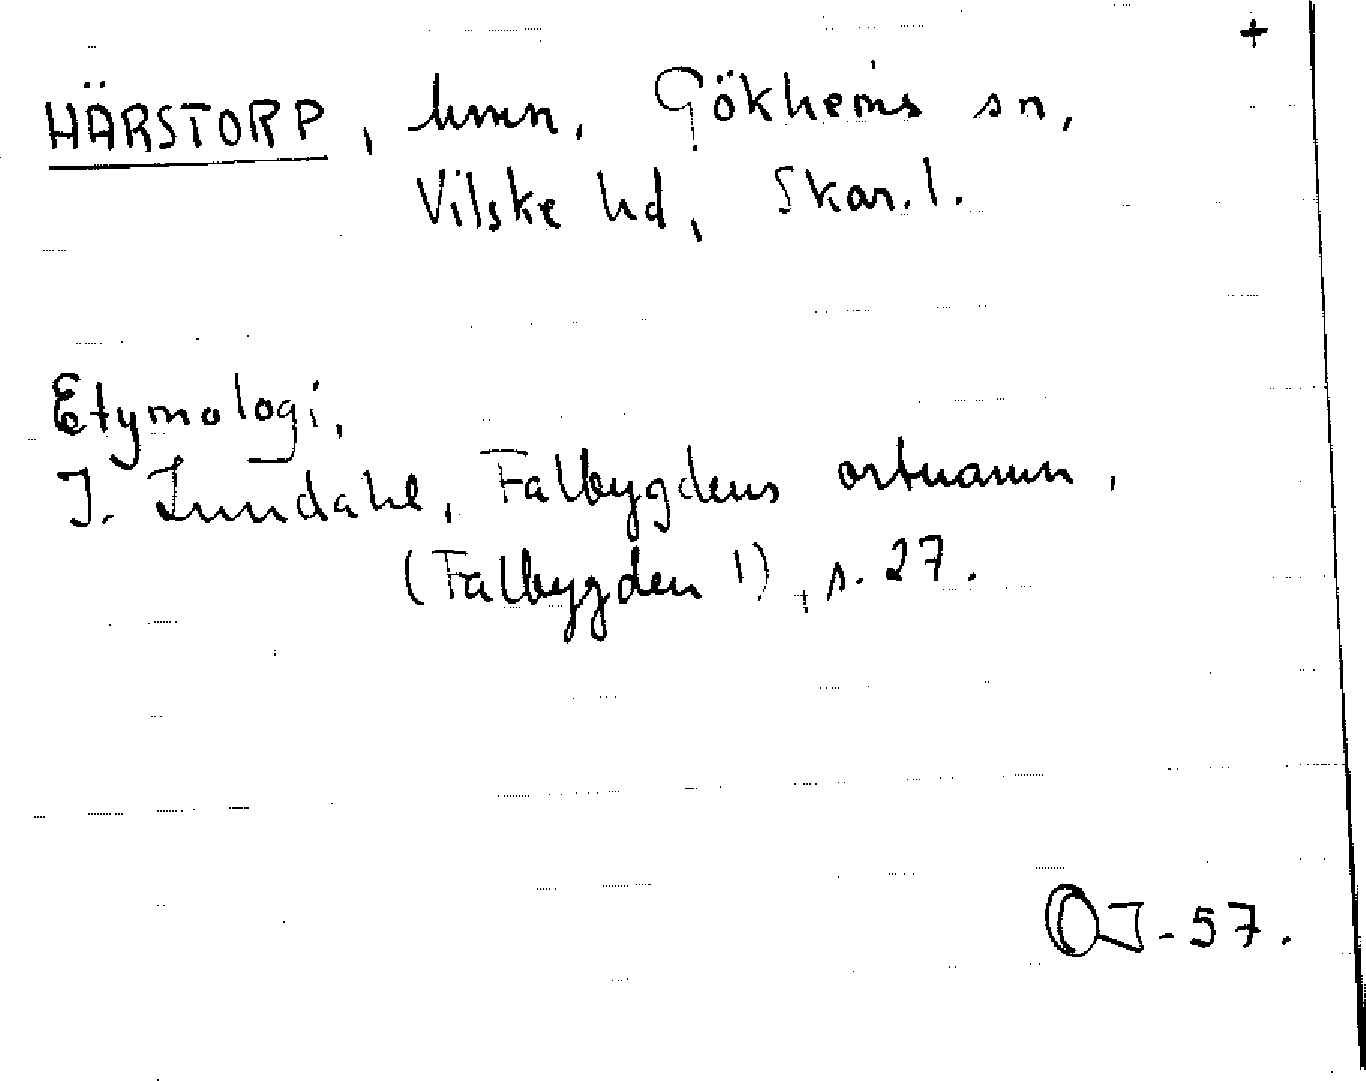 +
HÄRSTORP, hmn, Gökhems sn,
Vilske hd, Skar.l.
Etymologi,
I. Lundahl, Falbygdens ortnamn,
(Falbygden 1), s. 27.
OJ-57.